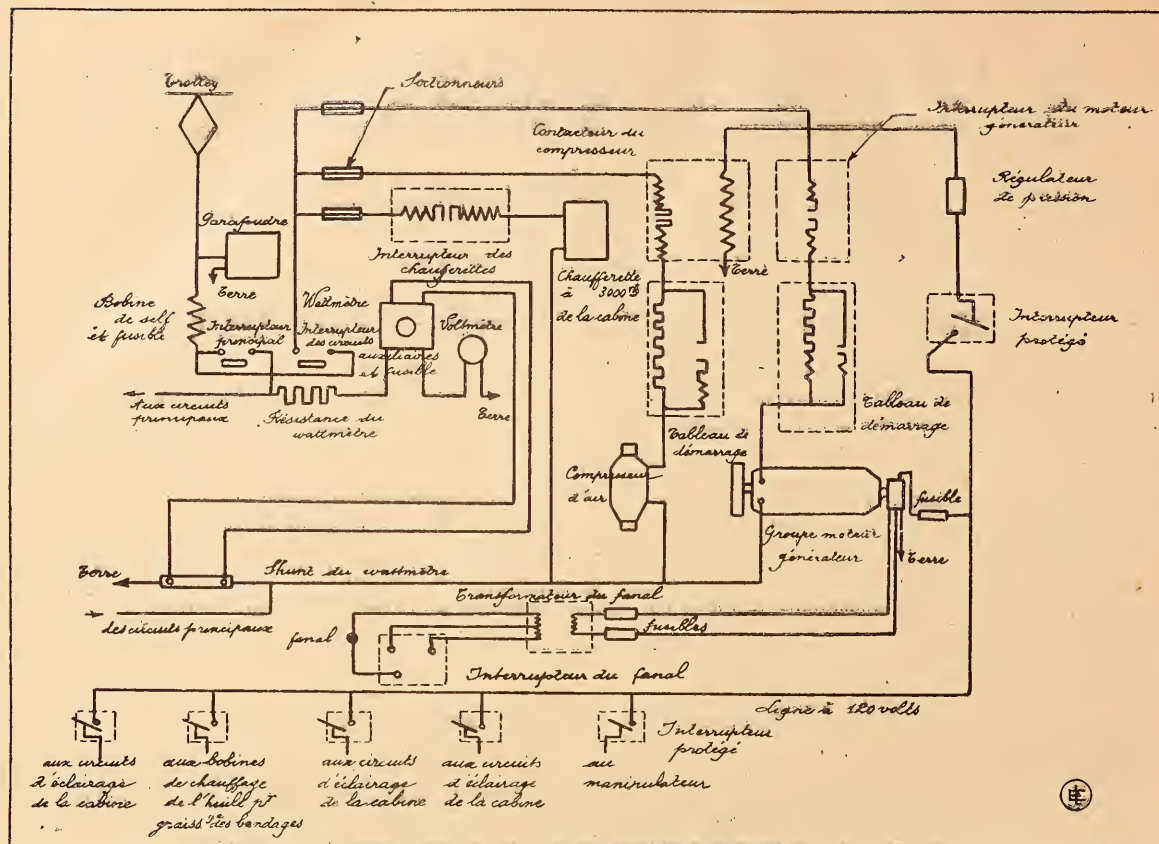 Trolley
Sectionneurs
Interrupteur du moteur
générateur
Contacteur du
compresseur
Régulateur
de pression
Parafoudre
Terre
Interrupteur des
chaufferettes
Chaufferette
à 3000 lts
de la cabine
Terre
Bobine
de self
et fusible
Interrupteur
principal
Wattmètre
Interrupteur
des circuits
auxiliaires
et fusible
Voltmètre
Interrupteur
protégé
Aux circuits
principaux
Résistance du
wattmètre
Terre
Tableau de
démarrage
Tableau de
démarrage
Compresseur
d'air
Groupe moteur
générateur
fusible
Terre
Terre
Shunt du wattmètre
des circuits principaux
Transformateur du fanal
fanal
fusibles
Interrupteur du fanal
Ligne à 120 volts
Interrupteur
protégé
aux circuits
d'éclairage
de la cabine
aux bobines
de chauffage
de l'huile pr
graiss. des bandages
aux circuits
d'éclairage
de la cabine
aux circuits
d'éclairage
de la cabine
au
manipulateur